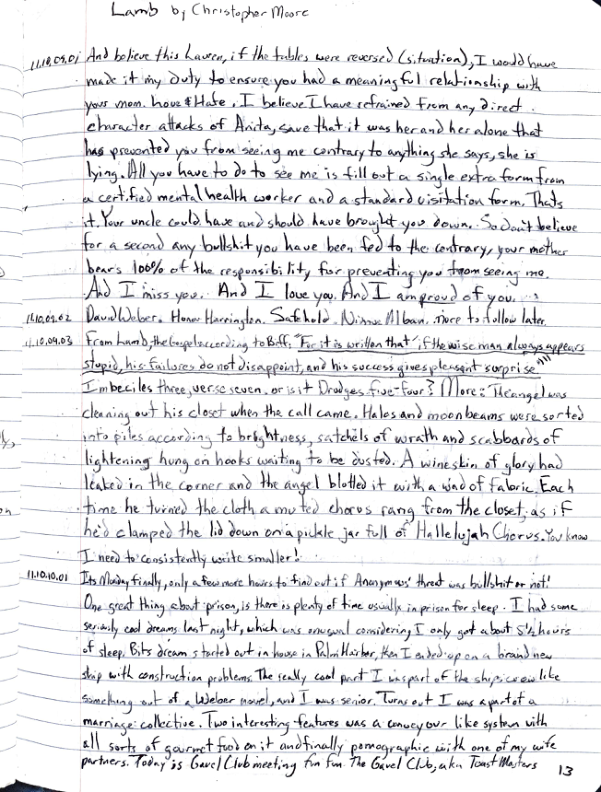 Lamb by Christopher Moore
11.10.09.01 And believe this Lauren, if the tables were reversed (situation), I would have
made it my duty to ensure you had a meaningful relationship with
your mom. Love & Hate, I believe I have refrained from any direct
character attacks of Anita, save that it was her and her alone that
has prevented you from seeing me contrary to anything she says, she is
lying. All you have to do to see me is fill out a single extra form from
a certified mental health worker and a standard visitation form. Thats
it. Your uncle could have and should have brought you down. So don't believe
for a second any bullshit you have been fed to the contrary, your mother
bears 100% of the responsibility for preventing you from seeing me.
And I miss you. And I love you. And I am proud of you.
11.10.09.02 David Weber. Honor Harrington. Safehold. Nimue Alban. more to follow later.
11.10.09.03 From Lamb, the Gospel according to Biff: "For it is written that "if the wise man always appears
stupid, his failures do not disappoint, and his success gives pleasant surprise""
Imbeciles three, verse seven. or is it Drudges five-four? More: The angel was
cleaning out his closet when the call came. Halos and moonbeams were sorted
into piles according to brightness, satchels of wrath and scabbards of
lightening hung on hooks waiting to be dusted. A wineskin of glory had
leaked in the corner and the angel blotted it with a wad of fabric. Each
time he turned the cloth a muted chorus rang from the closet, as if
he'd clamped the lid down on a pickle jar full of Hallelujah Chorus. You know
I need to consistently write smaller!
11.10.10.01 Its Monday finally, only a few more hours to find out if Anonymous' threat was bullshit or not!
One great thing about prison, is there is plenty of time usually in prison for sleep. I had some
seriously cool dreams last night, which was unusual considering I only got about 5½ hours
of sleep. Bits dream started out in house in Palm Harbor, then I ended up on a brand new
ship with construction problems. The really cool part I was part of the ship's crew like
something out of a Weber novel, and I was senior. Turns out I was a part of a
marriage collective. Two interesting features was a conveyour like system with
all sorts of gourmet food on it and finally pornographic with one of my wife
partners. Today is Gavel Club meeting fun fun. The Gavel Club, a.k.a. Toast Masters
13